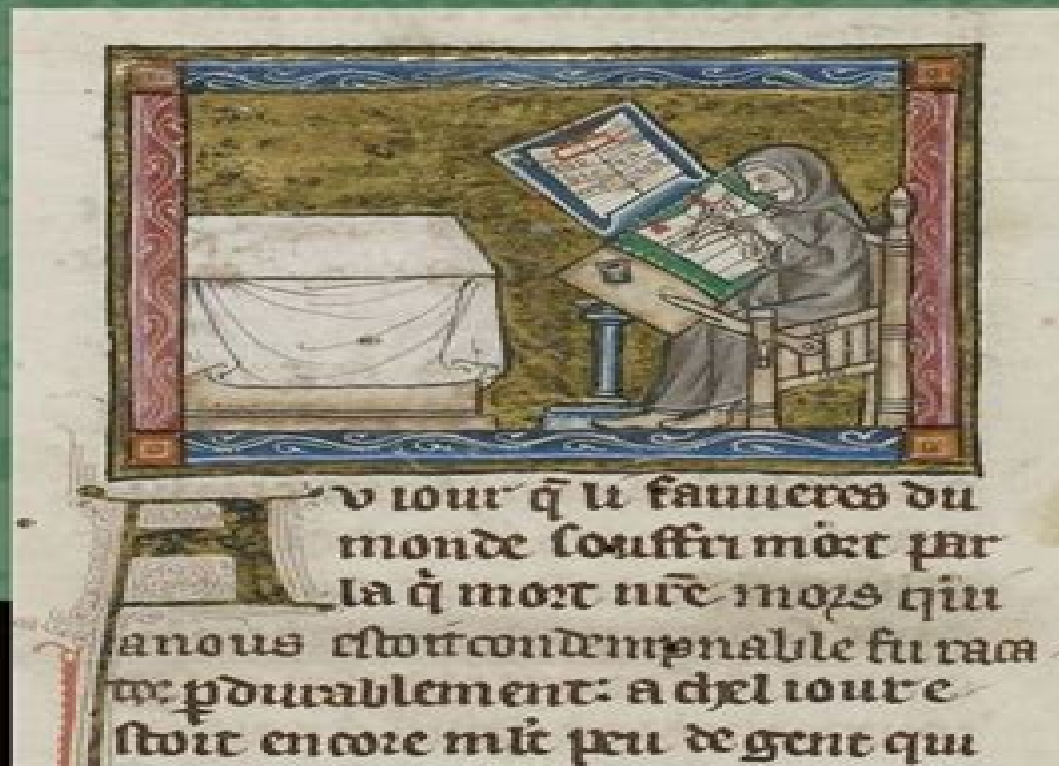 Au iour q̄ li sauueres du
monde souffri mort par
la q̄l mort nr̄e mors qui
anous estoit condempnable fu
ꝑdurablement: a chel iour e
stoit encore ml̄t peu de gent qui